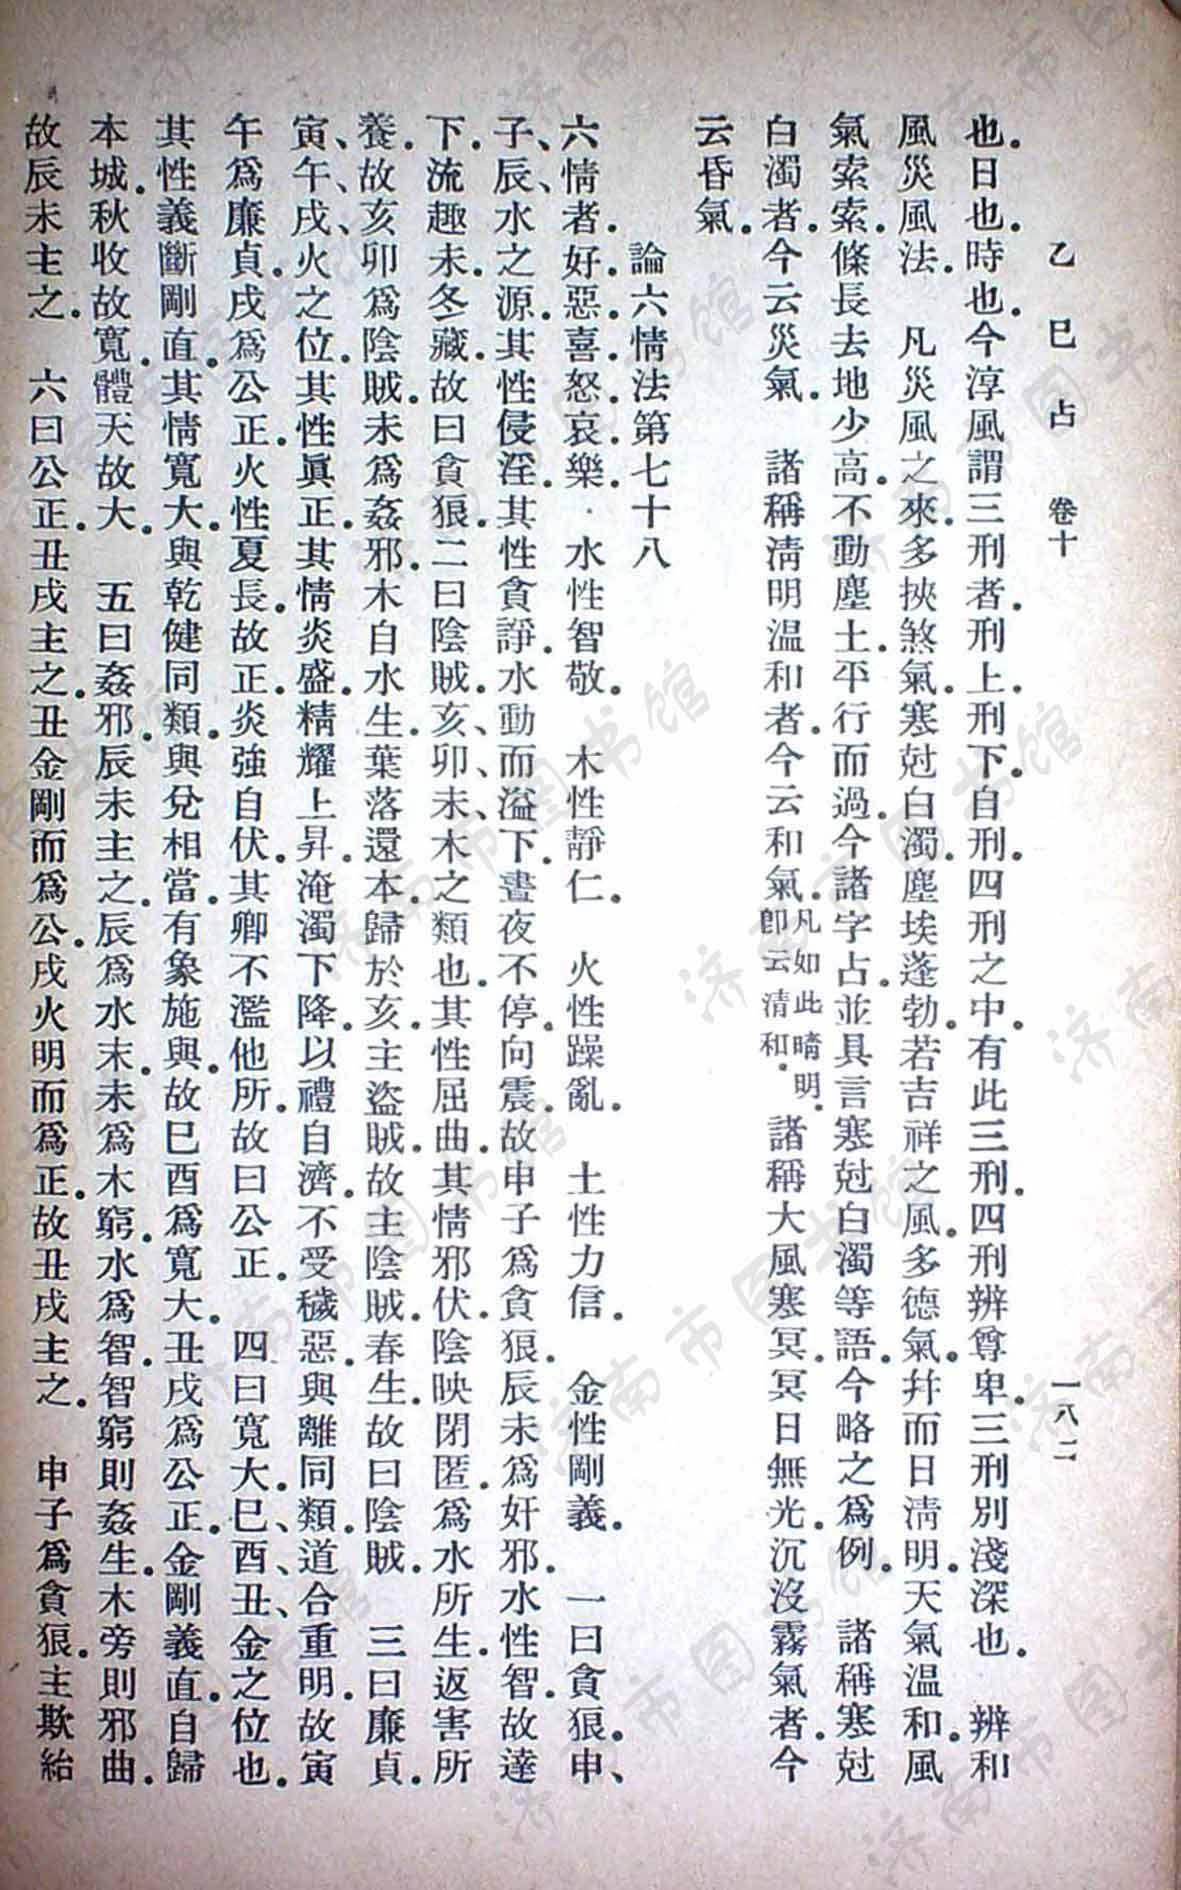 乙巳占　卷十　一八二
也。日也。時也。今淳風謂三刑者。刑上。刑下。自刑。四刑之中。有此三刑。四刑辨尊卑。三刑別淺深也。　辨和
風災風法。　凡災風之來。多挾煞氣。寒尅白濁。塵埃蓬勃。若吉祥之風。多德氣。并而日清明。天氣溫和。風
氣索索。條長去地少高。不動塵土。平行而過。今諸字占。並具言寒尅白濁等語。今略之爲例。　諸稱寒尅
白濁者。今云災氣。　諸稱清明溫和者。今云和氣。凡如此晴明。卽云清和。　諸稱大風寒冥。冥日無光。沉沒霧氣者。今
云昏氣。
論六情法第七十八
六情者。好。惡。喜。怒。哀。樂。水性智敬。　木性靜仁。　火性躁亂。　土性力信。　金性剛義。　一曰貪狼。申、
子、辰、水之源。其性侵淫。其性貪諍。水動而溢下。晝夜不停。向震。故申子爲貪狼。辰未爲奸邪。水性智。故達
下。流趣未。冬藏。故曰貪狼。二曰陰賊。亥、卯、未、木之類也。其性屈曲。其情邪伏。陰映閉匿。爲水所生。返害所
養。故亥卯爲陰賊。未爲姦邪。木自水生。葉落還本。歸於亥。亥主盜賊。故主陰賊。春生。故曰陰賊。　三曰廉貞。
寅、午、戌、火之位。其性眞正。其情炎盛。精耀上昇。淹濁下降。以禮自濟。不受穢惡。與離同類。道合重明。故寅
午爲廉貞。戌爲公正。火性夏長。故正。炎強自伏。其卿不濫他所。故曰公正。　四曰寬大。巳、酉、丑、金之位也。
其性義斷剛直。其情寬大。與乾健同類。與兌相當。有象施與。故巳酉爲寬大。丑戌爲公正。金剛義直。自歸
本城。秋收故寬。體天故大。　五曰姦邪。辰未主之。辰爲水末。未爲木窮。水爲智。智窮則姦生。木旁則邪曲。
故辰未主之。　六曰公正。丑戌主之。丑金剛而爲公。戌火明而爲正。故丑戌主之。　申子爲貪狼。主欺紿